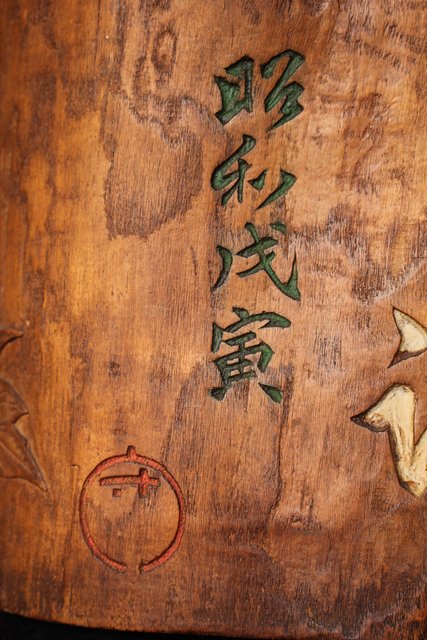 昭和戊寅